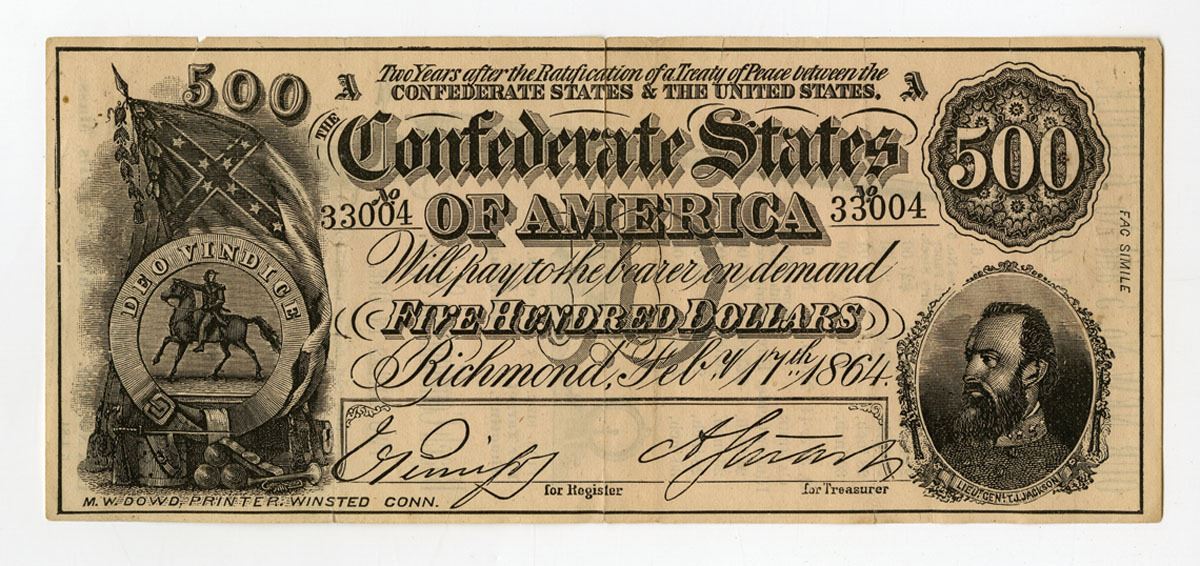 500
A
Two Years after the Ratification of a Treaty of Peace between the
A
CONFEDERATE STATES & THE UNITED STATES.
THE
Confederate States
500
No
33004
OF AMERICA
No
33004
FAC SIMILE
Will pay to the bearer on demand
DEO VINDICE
FIVE HUNDRED DOLLARS
Richmond, Feby. 17th 1864.
for Register
for Treasurer
LIEUT. GENL. T.J. JACKSON
M. W. DOWD, PRINTER. WINSTED CONN.